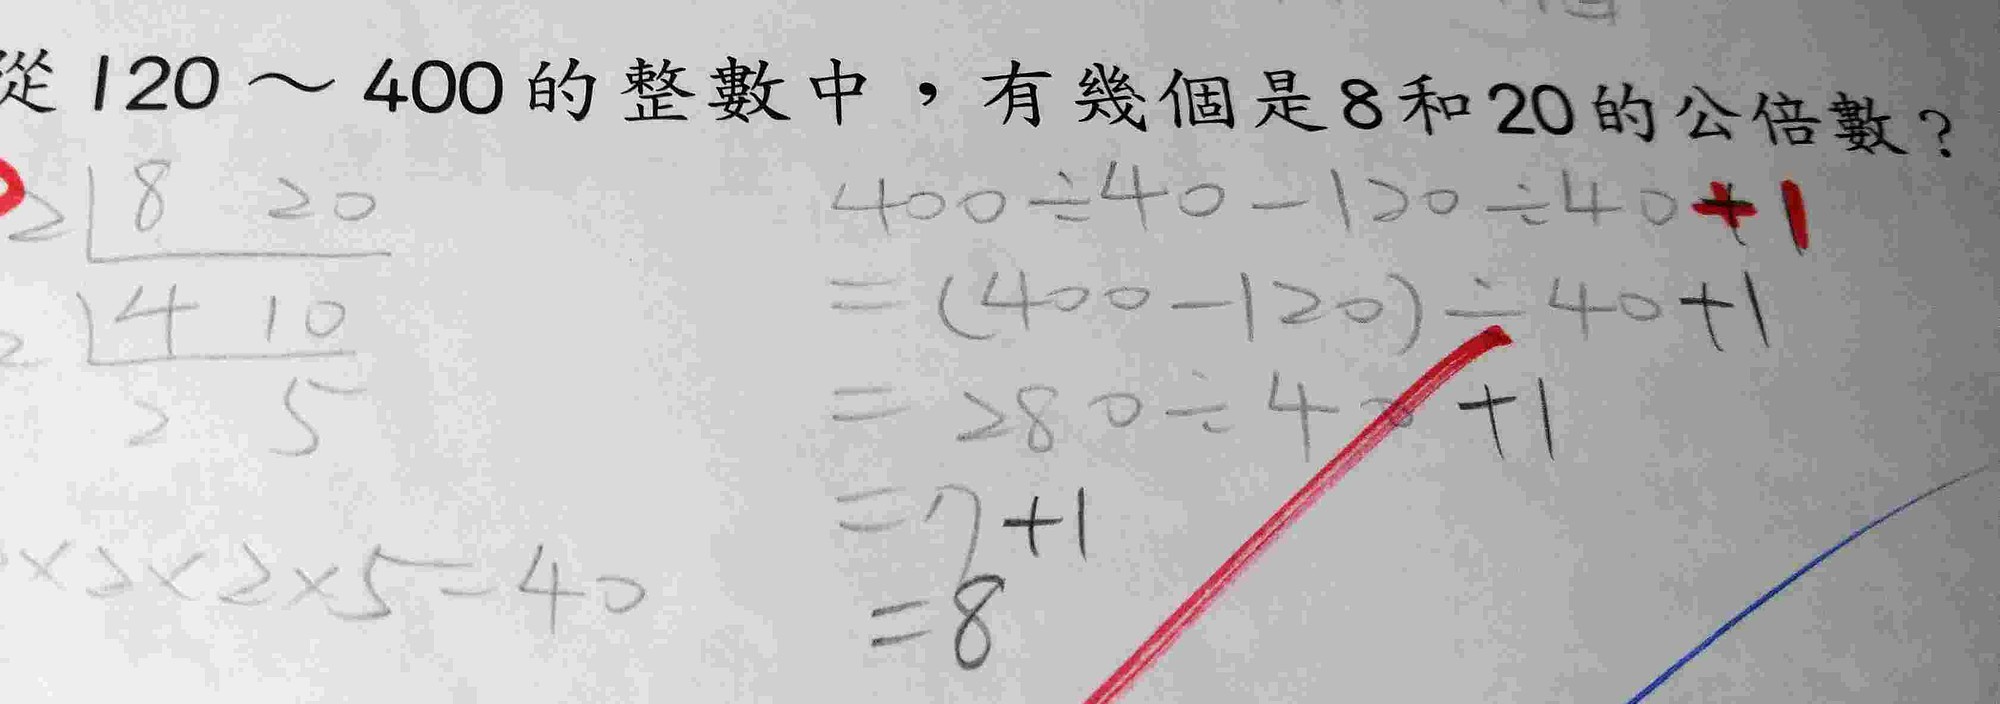 從120～400的整數中，有幾個是8和20的公倍數？
2 8 20
2 4 10
2 5
×2×2×5=40
400÷40-120÷40+1
=(400-120)÷40+1
=280÷40+1
=7+1
=8